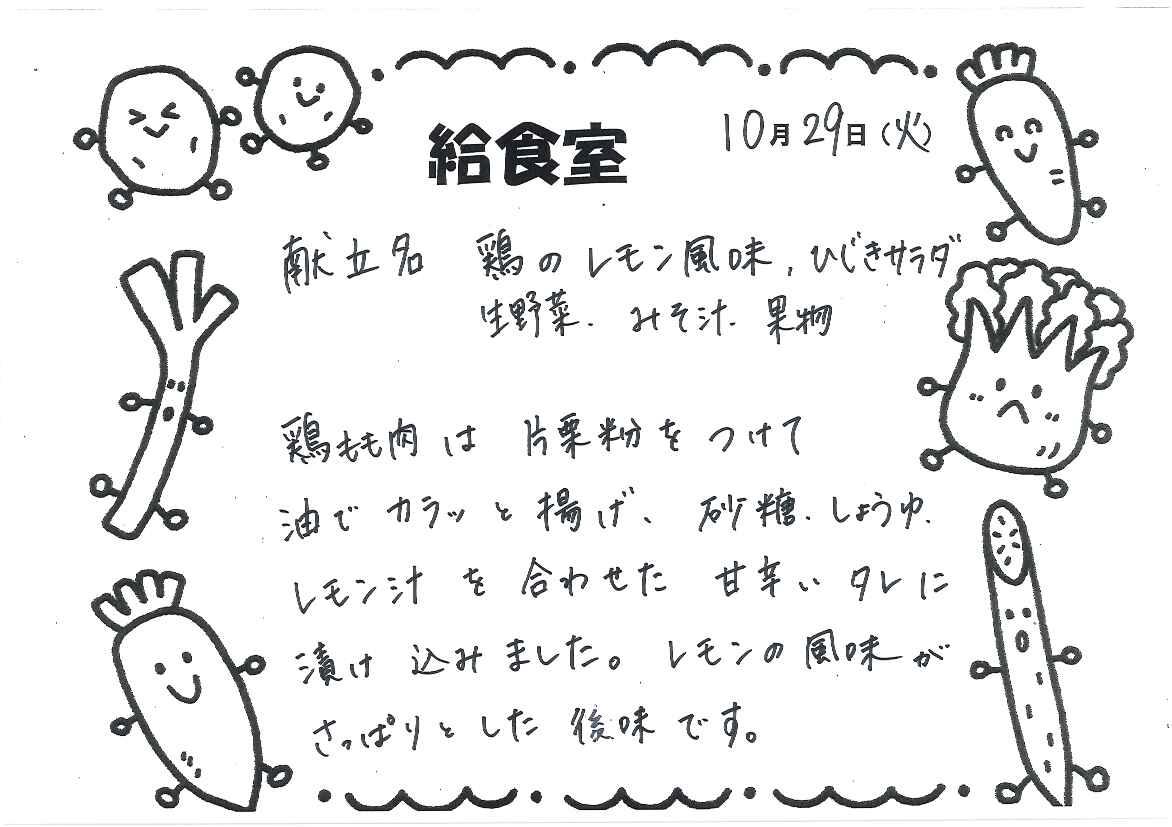 給食室
10月29日(火)
献立名 鶏のレモン風味、ひじきサラダ
生野菜、みそ汁、果物
鶏もも肉は片栗粉をつけて
油でカラッと揚げ、砂糖、しょうゆ、
レモン汁を合わせた甘辛いタレに
漬け込みました。レモンの風味が
さっぱりとした後味です。